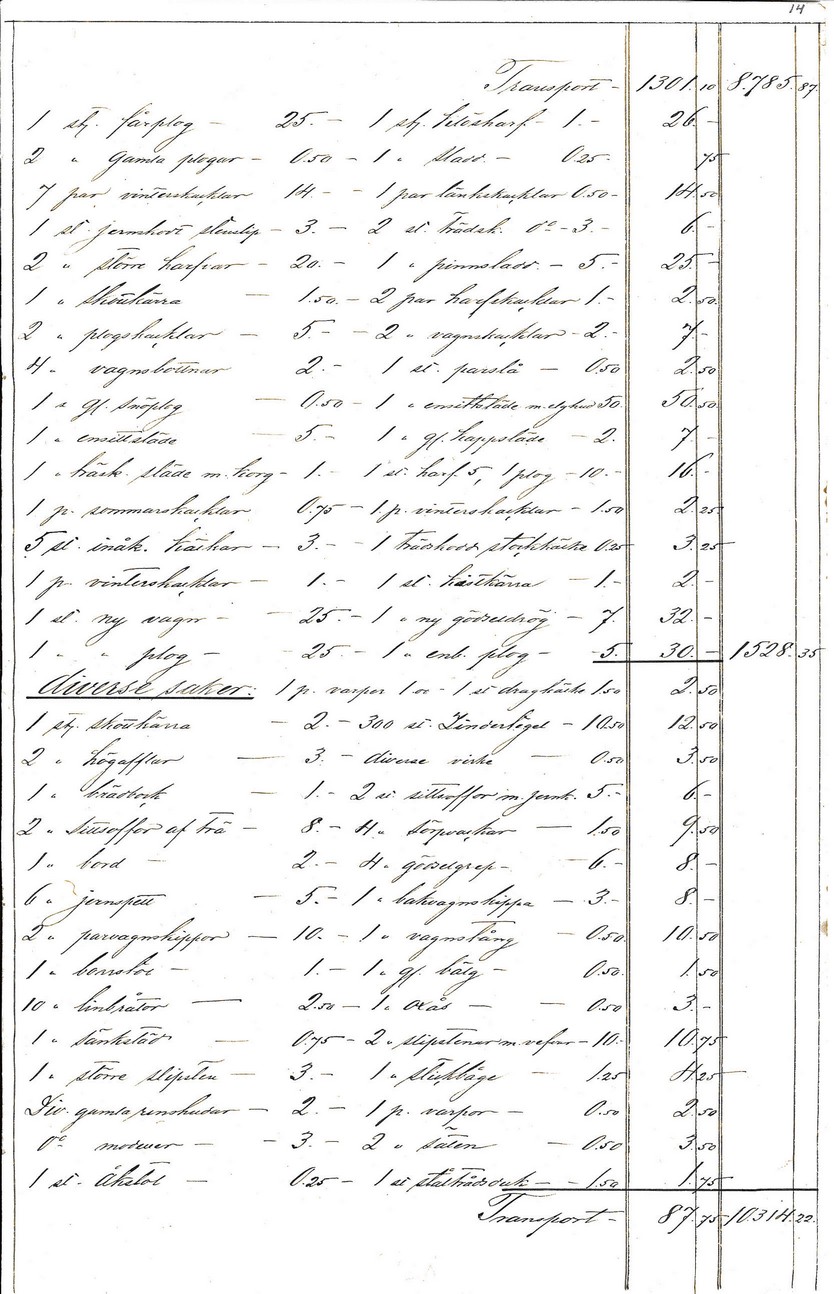 14
Transport - 1301.10 8.785.87
1 stj. färplog - 25.- 1 stj. klösharf - 1.- 26.-
2 " gamla plogar - 0.50 - 1 " sladd. - 0.25 75
7 par vinterskacklar 14.- - 1 par länkskacklar 0.50 - 14.50
1 st. jernskodd stenslip - 3.- 2 st. trädsk. do - 3.- 6.-
2 " större harfvar - 20.- 1 " pinnsladd. - 5.- 25.-
1 " skottkärra - 1.50 - 2 par harfskacklar 1.- 2.50
2 " plogskacklar - 5.- - 2 " vagnskacklar - 2.- 7.-
4 " vagnsbottnar 2.- 1 st. parslå - 0.50 2.50
1 " gl. snöplog - 0.50 - 1 " ensittsläde m. elghud 50. 50.50
1 " ensittsläde - 5.- 1 " gl. kappsläde - 2. 7.-
1 " träsk. släde m. korg - 1.- 1 st. harf 5, 1 plog - 10.- 16.-
1 p. sommarskacklar 0.75 - 1 p. vinterskacklar - 1.50 2.25
5 st. inåk. käckar - 3.- - 1 trädskodd stockkälke 0.25 3.25
1 p. vinterskacklar - 1.- 1 st. hästkärra - 1.- 2.-
1 st. ny vagn - 25.- 1 " ny gödseldrög - 7. 32.-
1 " " plog - 25.- 1 " enb. plog - 5. 30.- 1528.35
diverse saker: 1 p. varpor 1 oc - 1 st dragkälke 1.50 2.50
1 stj. skottkärra - 2.- 300 st. Zindertegel - 10.50 12.50
2 " högafflar - 3.- diverse virke - 0.50 3.50
1 " brädbock - 1.- 2 st. sittsoffor m. jernk. 5.- 6.-
2 " sittsoffor af trä - 8.- 4 " törpvackar - 1.50 9.50
1 " bord - 2.- 4 " gödselgrep - 6.- 8.-
6 " jernspett - 5.- 1 " bakvagnskippa - 3.- 8.-
2 " parvagnskippor - 10.- 1 " vagnstång - 0.50 10.50
1 " borrstol - 1.- 1 " gl. bälg - 0.50 1.50
10 " linbråtor - 2.50 - 1 " oxås - 0.50 3.-
1 " sänkstäd - 0.75 - 2 " slipstenar m. vefvar - 10.- 10.75
1 " större slipsten - 3.- 1 " stickbåge - 1.25 4.25
Div. gamla renshudar - 2.- 1 p. varpor - 0.50 2.50
do modeller - 3.- 2 " säten - 0.50 3.50
1 st. åkstol 0.25 - 1 st ståltrådsduk - 1.50 1.75
Transport - 87.75 10.314.22